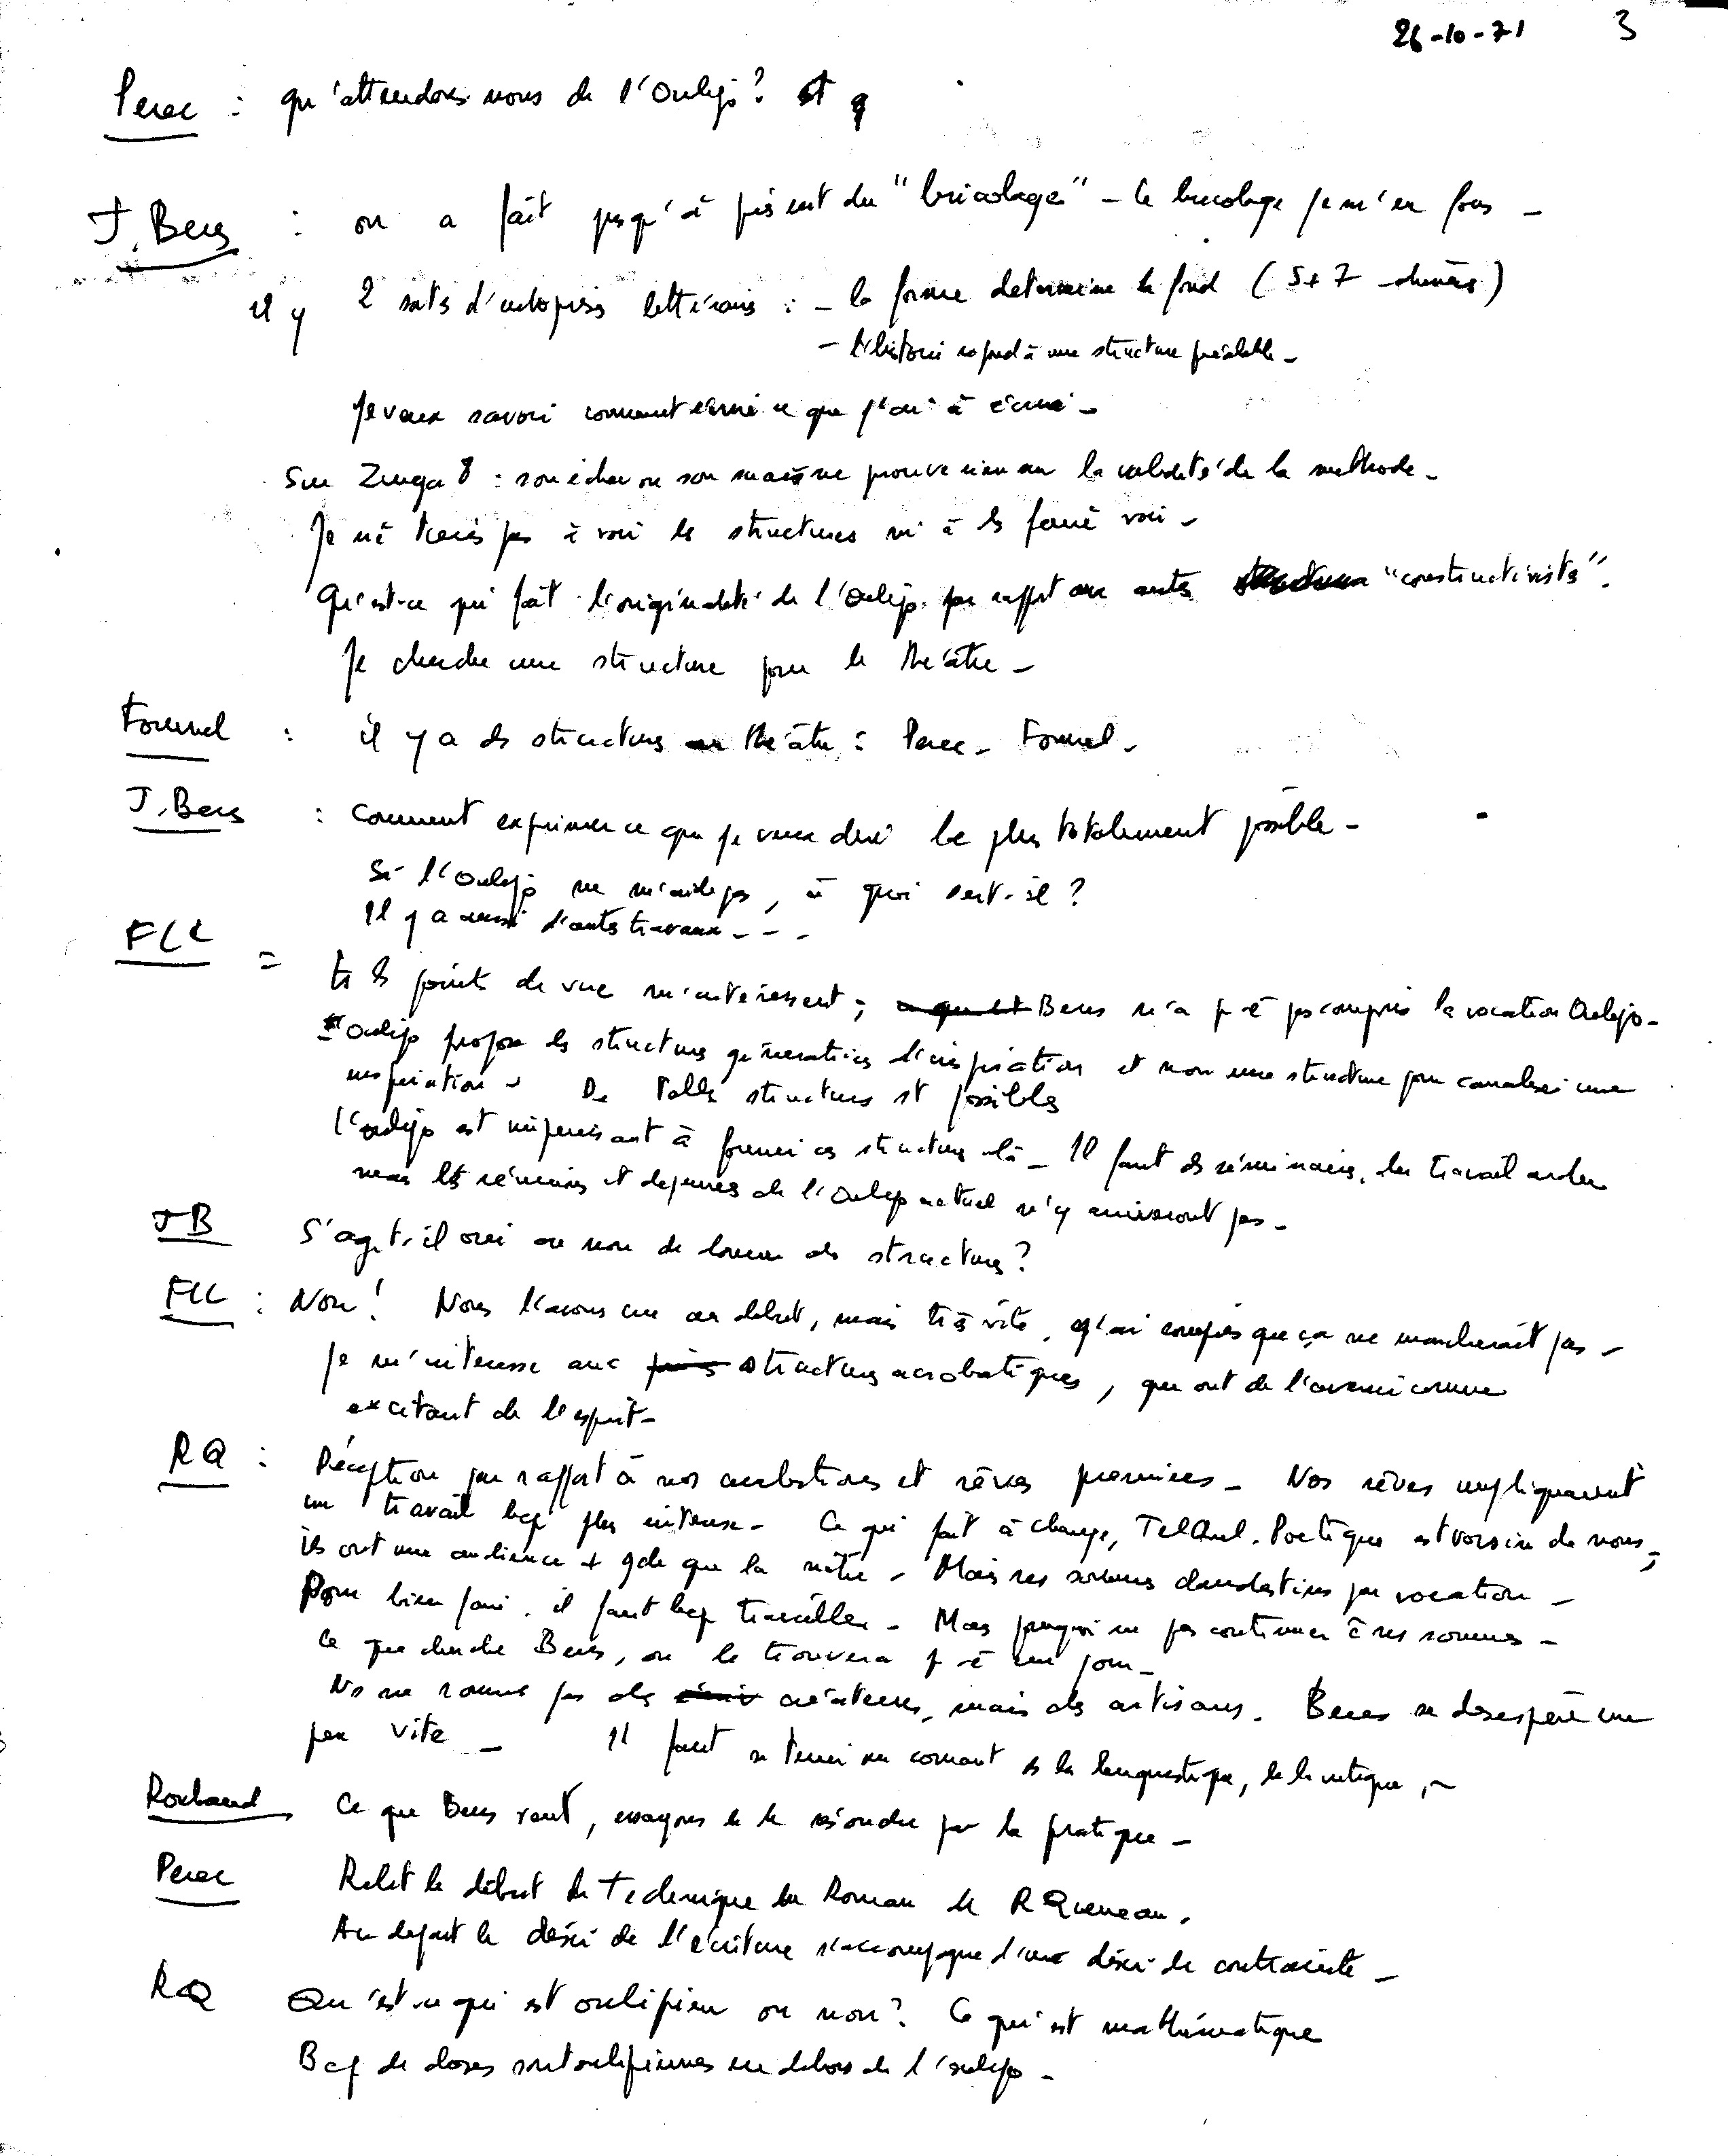 26-10-71 3
Perec : qu'attendons-nous de l'Oulipo? et q
J. Bens : on a fait jusqu'à présent du "bricolage" - le bricolage je m'en fous -
il y 2 sortes d' littéraires : - la forme détermine le fond (S+7 - )
- l'histoire répond à une structure préalable -
Je veux savoir comment écrire ce que j'ai à écrire -
Sur Zinga 8 : son échec ou son ne prouve rien sur la validité de la méthode -
Je ne tiens pas à voir les structures ni à les faire voir -
Qu'est-ce qui fait l'originalité de l'Oulipo par rapport aux autres "constructivistes".
Je cherche une structure pour le théâtre -
Fournel : il y a des structures au théâtre : Perec - Fournel -
J. Bens : Comment exprimer ce que je veux dire le plus totalement possible -
Si l'Oulipo ne m'aide pas, à quoi sert-il ?
Il y a aussi d'autres travaux - - -
FLL = ts les points de vue m'intéressent ; ce qui est Bens n'a p-ê pas compris la vocation Oulipo -
L'Oulipo propose des structures génératrices d'inspiration et non une structure pour canaliser une
inspiration - De telles structures st possibles
l'oulipo est impuissant à fournir ces structures-là - Il faut des séminaires, du travail ardu
mais les réunions et dejeuners de l'Oulipo actuel n'y arriveront pas -
JB S'agit-il oui ou non de trouver des structures ?
FLL : Non ! Nous l'avons cru au début, mais très vite, j'ai compris que ça ne marcherait pas -
Je m'intéresse aux structures acrobatiques, qui ont de l'avenir comme
excitant de l'esprit -
RQ : Déception par rapport à nos ambitions et rêves premiers - Nos rêves impliquaient
un travail bcp plus intense - Ce qui fait à change, Tel Quel. Poétique est voisin de nous,
ils ont une audience + gde que la nôtre - Mais ns sommes clandestins par vocation -
Pour bien faire, il faut bcp travailler - Mais pourquoi ne pas continuer ê ns sommes -
Ce que cherche Bens, on le trouvera p-ê un jour -
Ns ne sommes pas des créateurs, mais des artisans. Bens se désespère un
peu vite - Il faut se tenir au courant de la linguistique, de la critique, ~
Roubaud Ce que Bens veut, essayons de le résoudre par la pratique -
Perec Relit le début de Technique du Roman de R Queneau.
Au départ le désir de l'écriture s'accompagne d'un désir de contrainte -
RQ Qu'est-ce qui est oulipien ou non ? Ce qui est mathématique
Bcp de choses sont oulipiennes en dehors de l'oulipo -